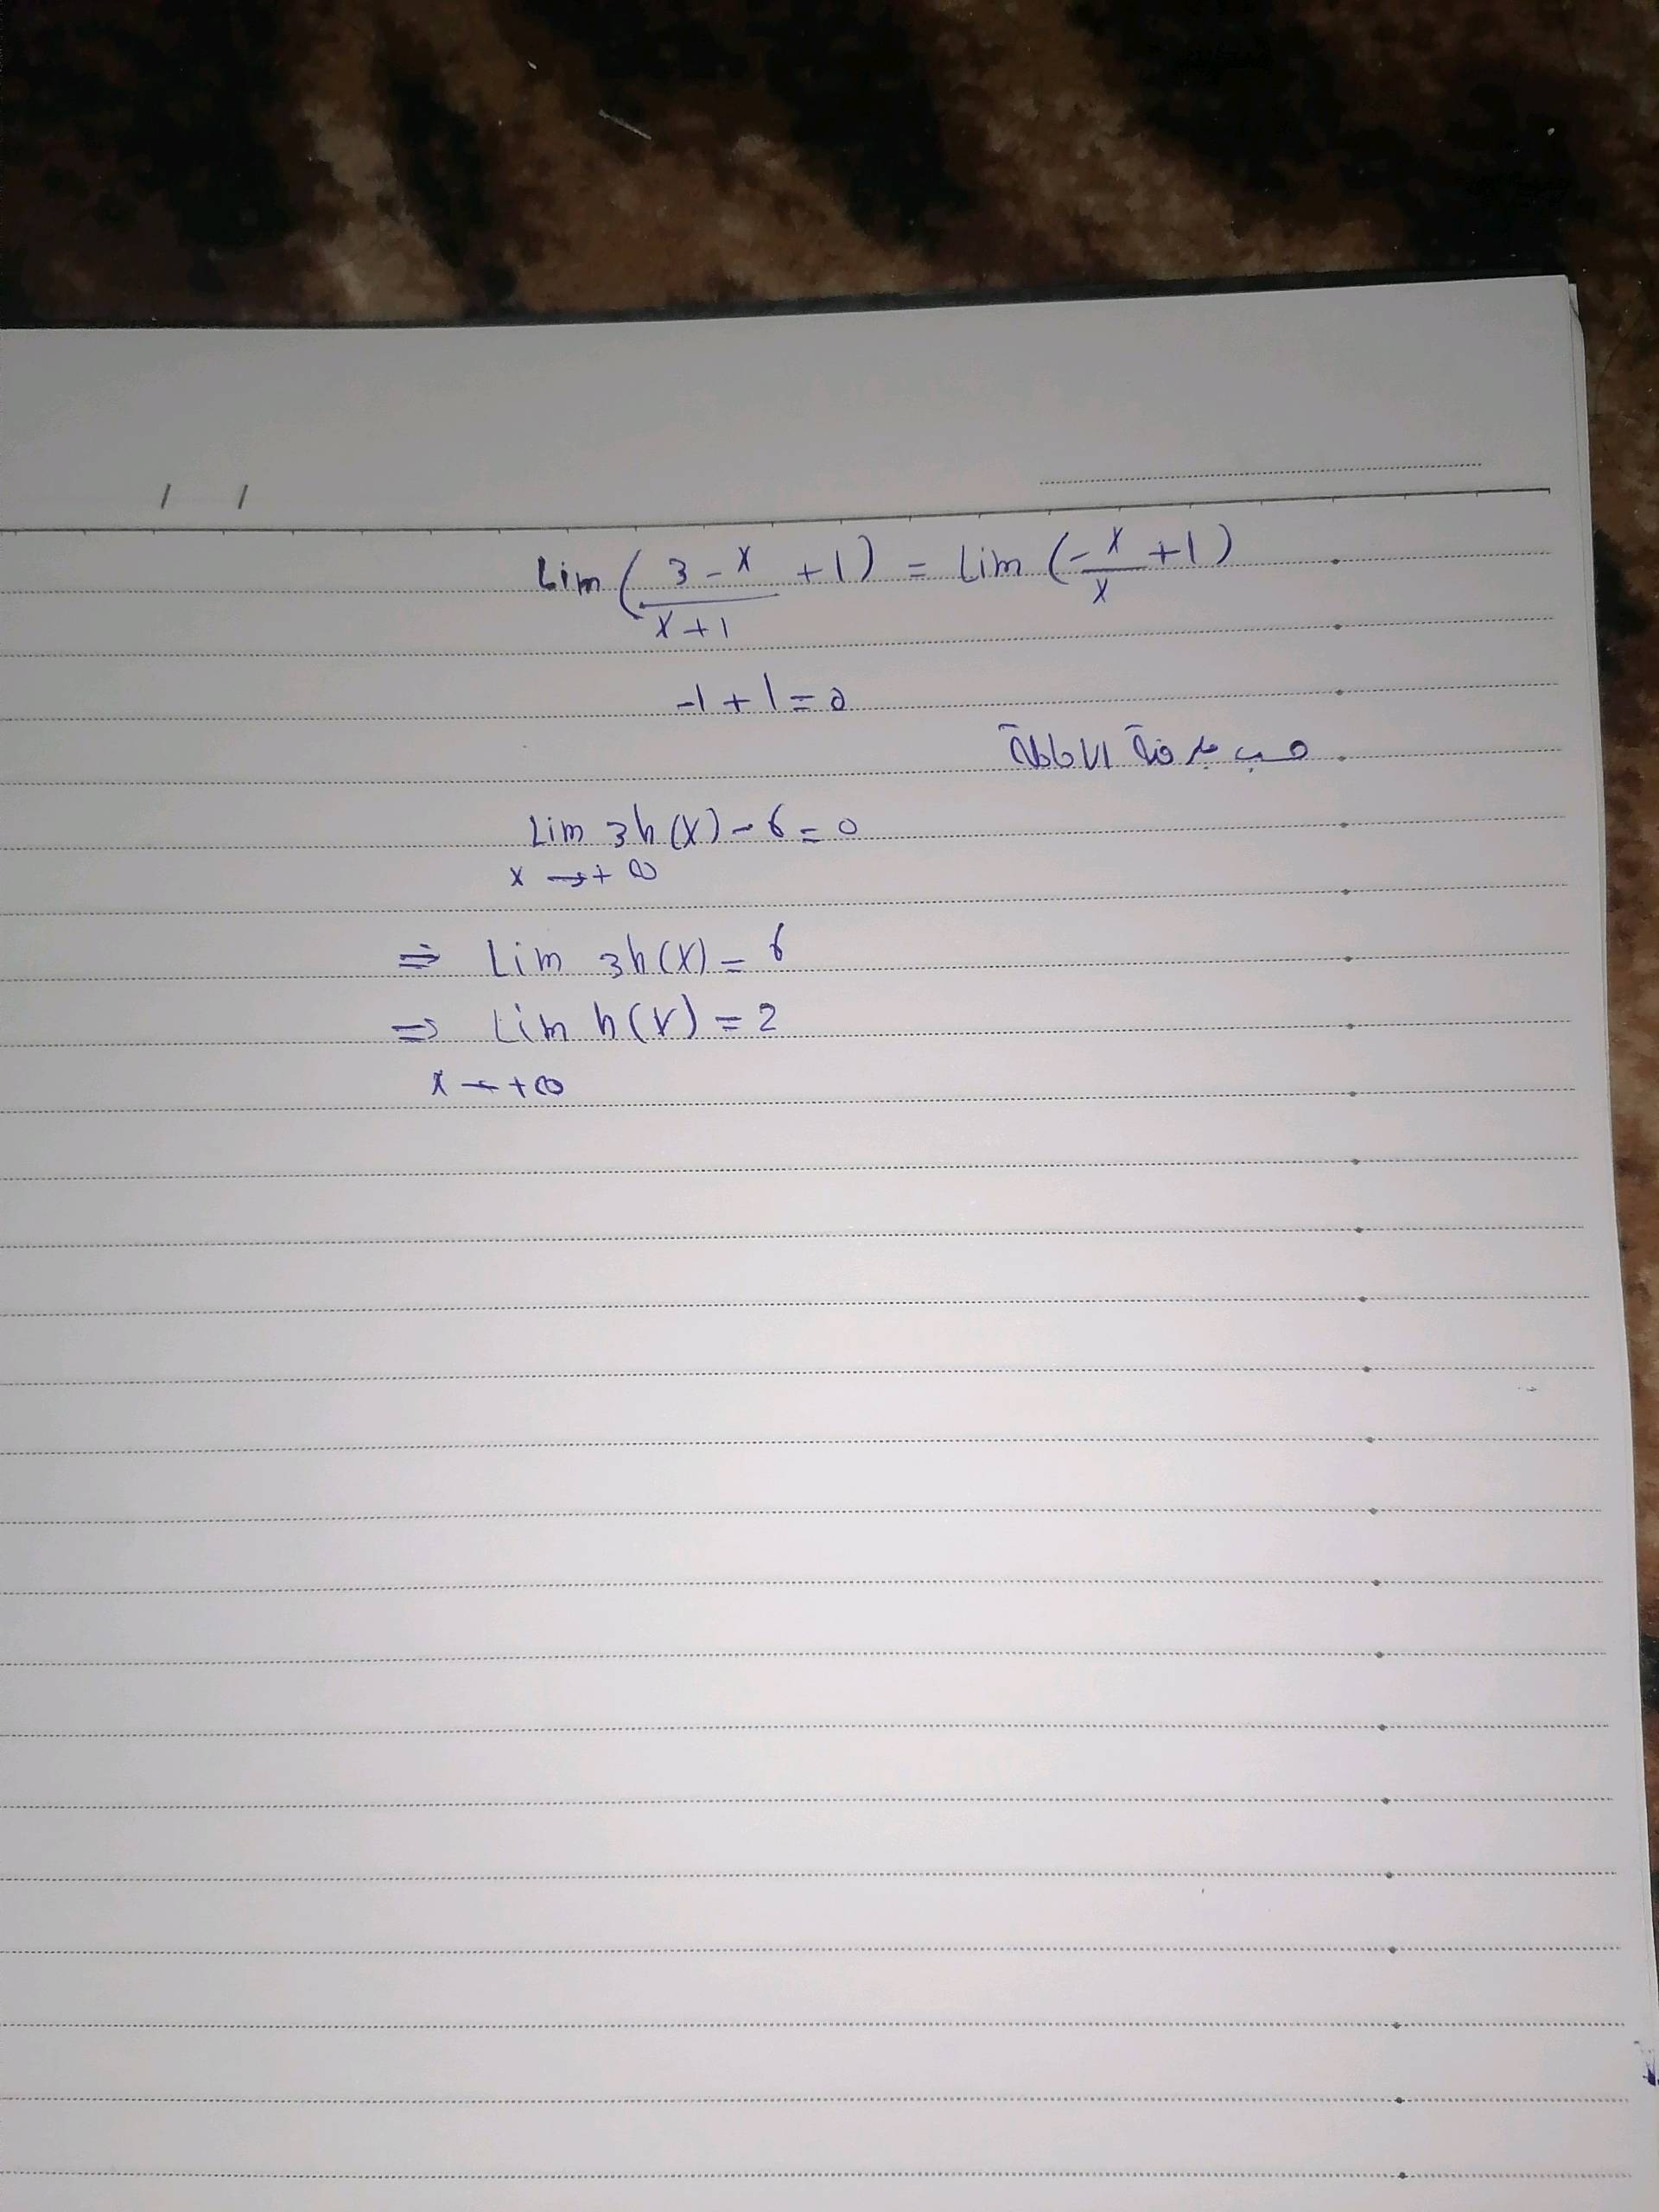 / /
Lim ( (3-x)/(x+1) +1) = Lim (-x/x +1)
-1+1=0
حسب مبرهنة الاحاطة
Lim 3h(x)-6=0
x→+∞
⇒ Lim 3h(x)=6
⇒ Lim h(x)=2
x→+∞